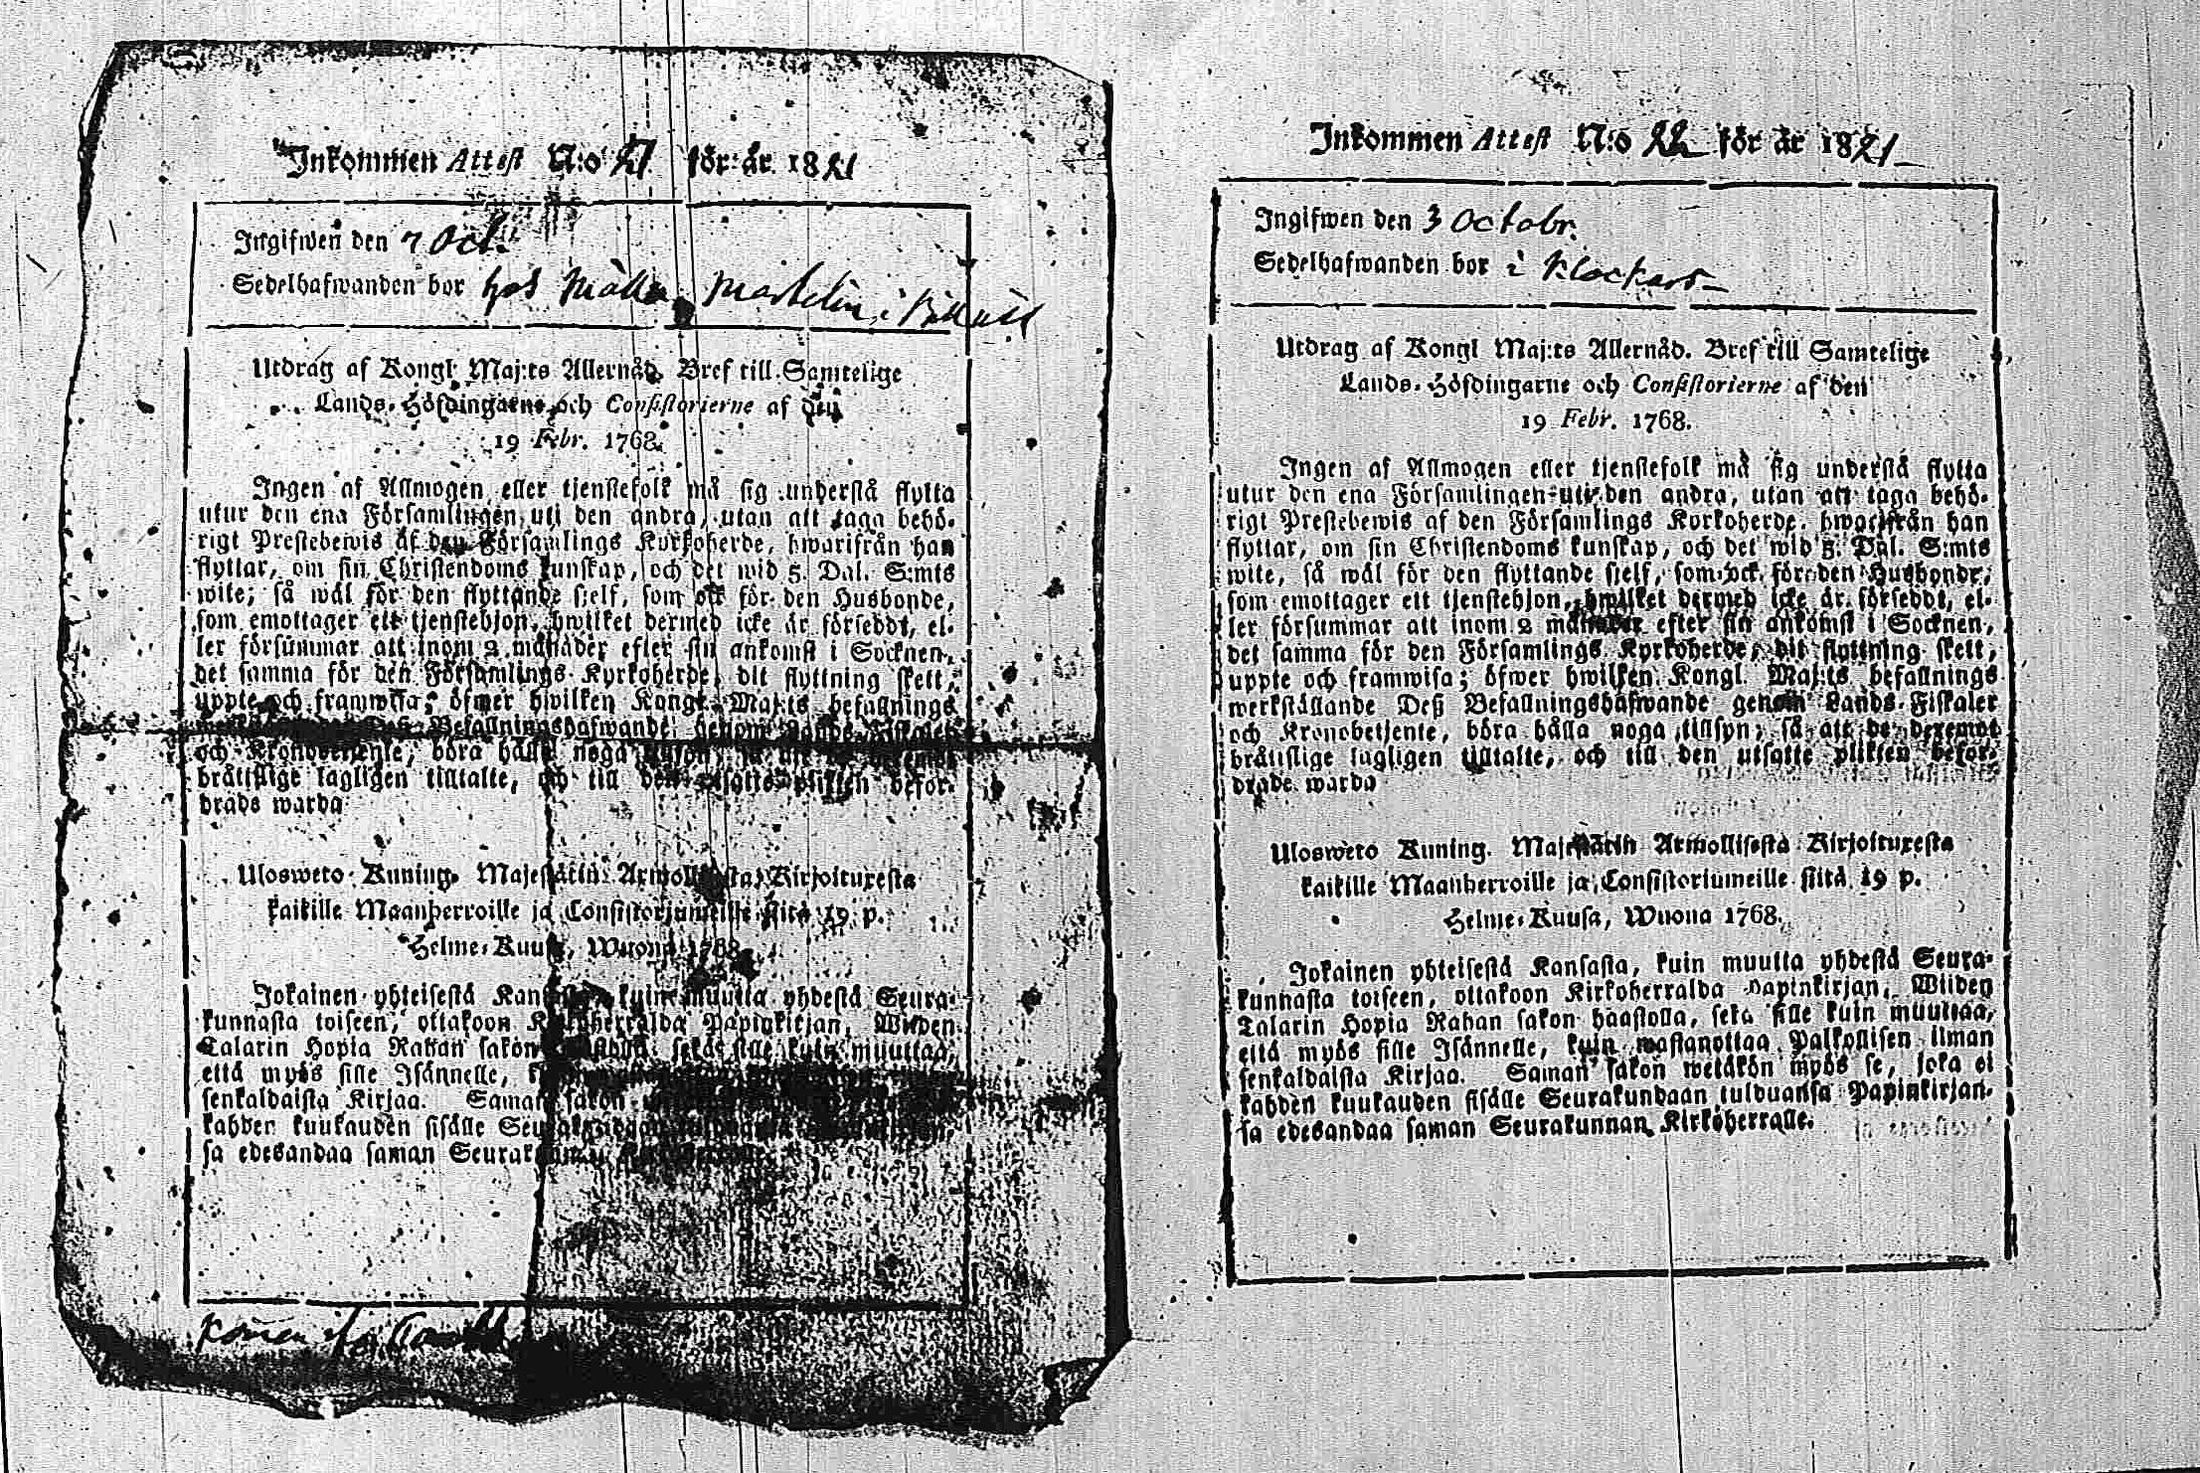 Inkommen Attest N:o 21 för år 1821
Ingifwen den 7 Oct.
Sedelhafwanden bor hos
Utdrag af Kongl Maj:ts Allernåd. Bref till Samtelige
Lands-Höfdingarne och Consistorierne af den
19 Febr. 1768.
Ingen af Allmogen eller tjenstefolk må sig understå flytta
utur den ena Församlingen uti den andra, utan att taga behö-
rigt Prestebewis af den Församlings Kyrkoherde, hwarifrån han
flyttar, om sin Christendoms kunskap, och det wid 5. Dal. S:mts
wite; så wäl för den flyttande sjelf, som ock för den Husbonde,
som emottager ett tjenstehjon, hwilket dermed icke är försedt, el-
ler försummar att inom 2 månader efter sin ankomst i Socknen,
det samma för den Församlings Kyrkoherde, dit flyttning skett,
uppte och framwisa; öfwer hwilken Kongl. Maj:ts befallnings
Befallningshafwande genom Lands-Fiskaler
och Kronobetjente, böra hålla noga
bråttslige lagligen tilltalte, och till den utsatte plikten befor-
drade warda
Ulosweto Kuning. Majestätin Armollisesta Kirjoituxesta
kaikille Maanherroille ja Consistoriumeille siitä 19 p.
Helme-Kuusa, Wuona 1768.
Jokainen yhteisestä Kansasta, kuin muutta yhdestä Seura-
kunnasta toiseen, ottakoon Kirkoherralda Papinkirjan, Wiiden
Talarin Hopia Rahan sakon haastolla, sekä sille kuin muuttaa,
että myös sille Isännelle,
senkaldaista Kirjaa. Saman sakon
kahden kuukauden sisälle
sa edesandaa saman Seurakunnan
Inkommen Attest N:o 22 för år 1821
Ingifwen den 3 Octobr.
Sedelhafwanden bor i Klockars
Utdrag af Kongl Maj:ts Allernåd. Bref till Samtelige
Lands-Höfdingarne och Consistorierne af den
19 Febr. 1768.
Ingen af Allmogen eller tjenstefolk må sig understå flytta
utur den ena Församlingen uti den andra, utan att taga behö-
rigt Prestebewis af den Församlings Kyrkoherde, hwarifrån han
flyttar, om sin Christendoms kunskap, och det wid 5. Dal. S:mts
wite, så wäl för den flyttande sjelf, som ock för den Husbonde,
som emottager ett tjenstehjon, hwilket dermed icke är försedt, el-
ler försummar att inom 2 månader efter sin ankomst i Socknen,
det samma för den Församlings Kyrkoherde, dit flyttning skett,
uppte och framwisa; öfwer hwilken Kongl. Maj:ts befallnings
werkställande Deß Befallningshafwande genom Lands-Fiskaler
och Kronobetjente, böra hålla noga tillsyn; så att de deremot
bråttslige lagligen tilltalte, och till den utsatte plikten befor-
drade warda
Ulosweto Kuning. Majestätin Armollisesta Kirjoituxesta
kaikille Maanherroille ja Consistoriumeille siitä 19 p.
Helme-Kuusa, Wuona 1768.
Jokainen yhteisestä Kansasta, kuin muutta yhdestä Seura-
kunnasta toiseen, ottakoon Kirkoherralda Papinkirjan, Wiiden
Talarin Hopia Rahan sakon haastolla, sekä sille kuin muuttaa,
että myös sille Isännelle, kuin wastanottaa Palkollisen ilman
senkaldaista Kirjaa. Saman sakon wetäkön myös se, joka ei
kahden kuukauden sisälle Seurakundaan tulduansa Papinkirjan-
sa edesandaa saman Seurakunnan Kirkoherralle.